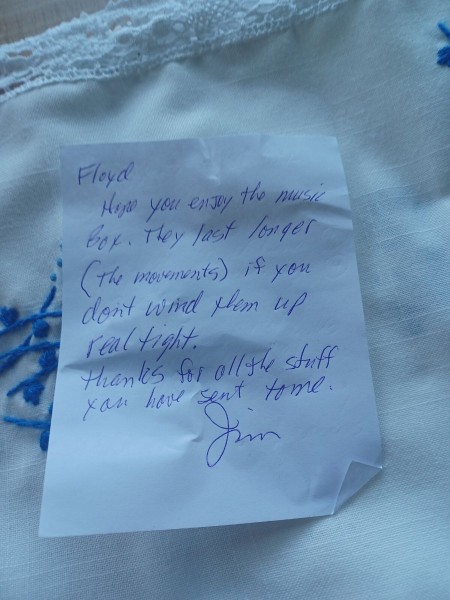 Floyd
Hope you enjoy the music
box. They last longer
(The movements) if you
don't wind them up
real tight.
Thanks for all the stuff
you have sent to me.
Jim